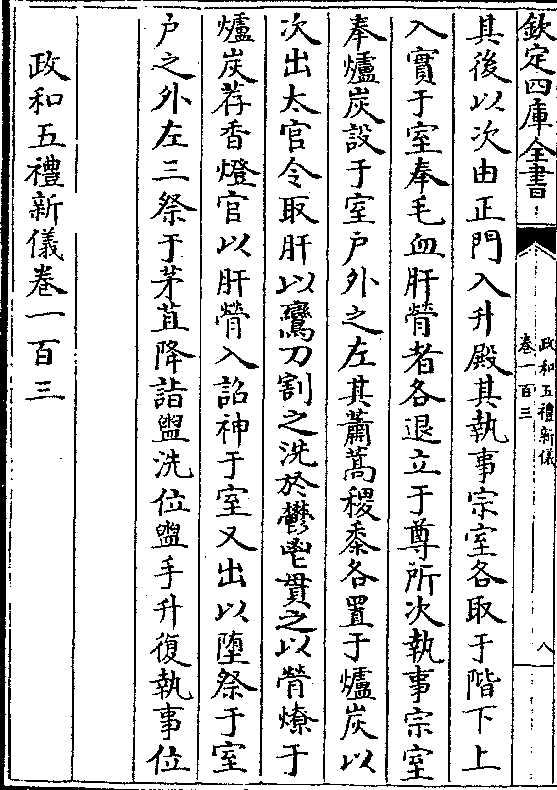 欽定四庫全書
政和五禮新儀
卷一百三
八
其後以次由正門入升殿其執事宗室各取于階下上
入實于室奉毛血肝膋者各退立于尊所次執事宗室
奉爐炭設于室户外之左其蕭蒿稷黍各置于爐炭以
次出太官令取肝以鸞刀割之洗於鬱鬯貫之以膋燎于
爐炭荐香燈官以肝膋入詔神于室又出以墮祭于室
户之外左三祭于茅苴降詣盥洗位盥手升復執事位
政和五禮新儀卷一百三